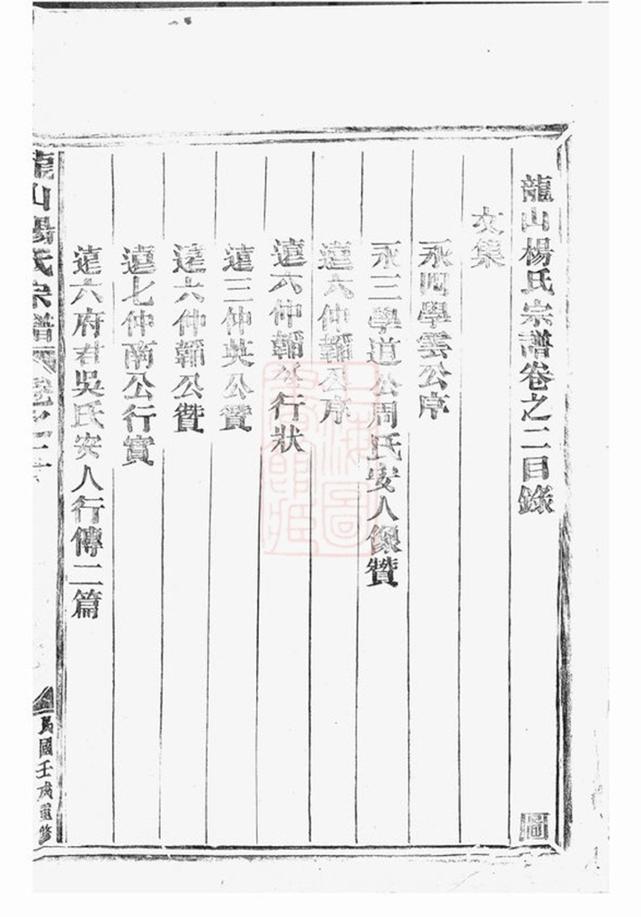 龍山楊氏宗譜卷之二目錄
文集
永四學雲公序
永三學道公周氏安人像贊
遠六仲翰公序
遠六仲翰公行狀
遠三仲英公贊
遠六仲翰公贊
遠七仲南公行實
遠六府君吳氏安人行傳二篇
龍山楊氏宗譜 卷之二
民國壬戌重修
圖
上海圖書館藏